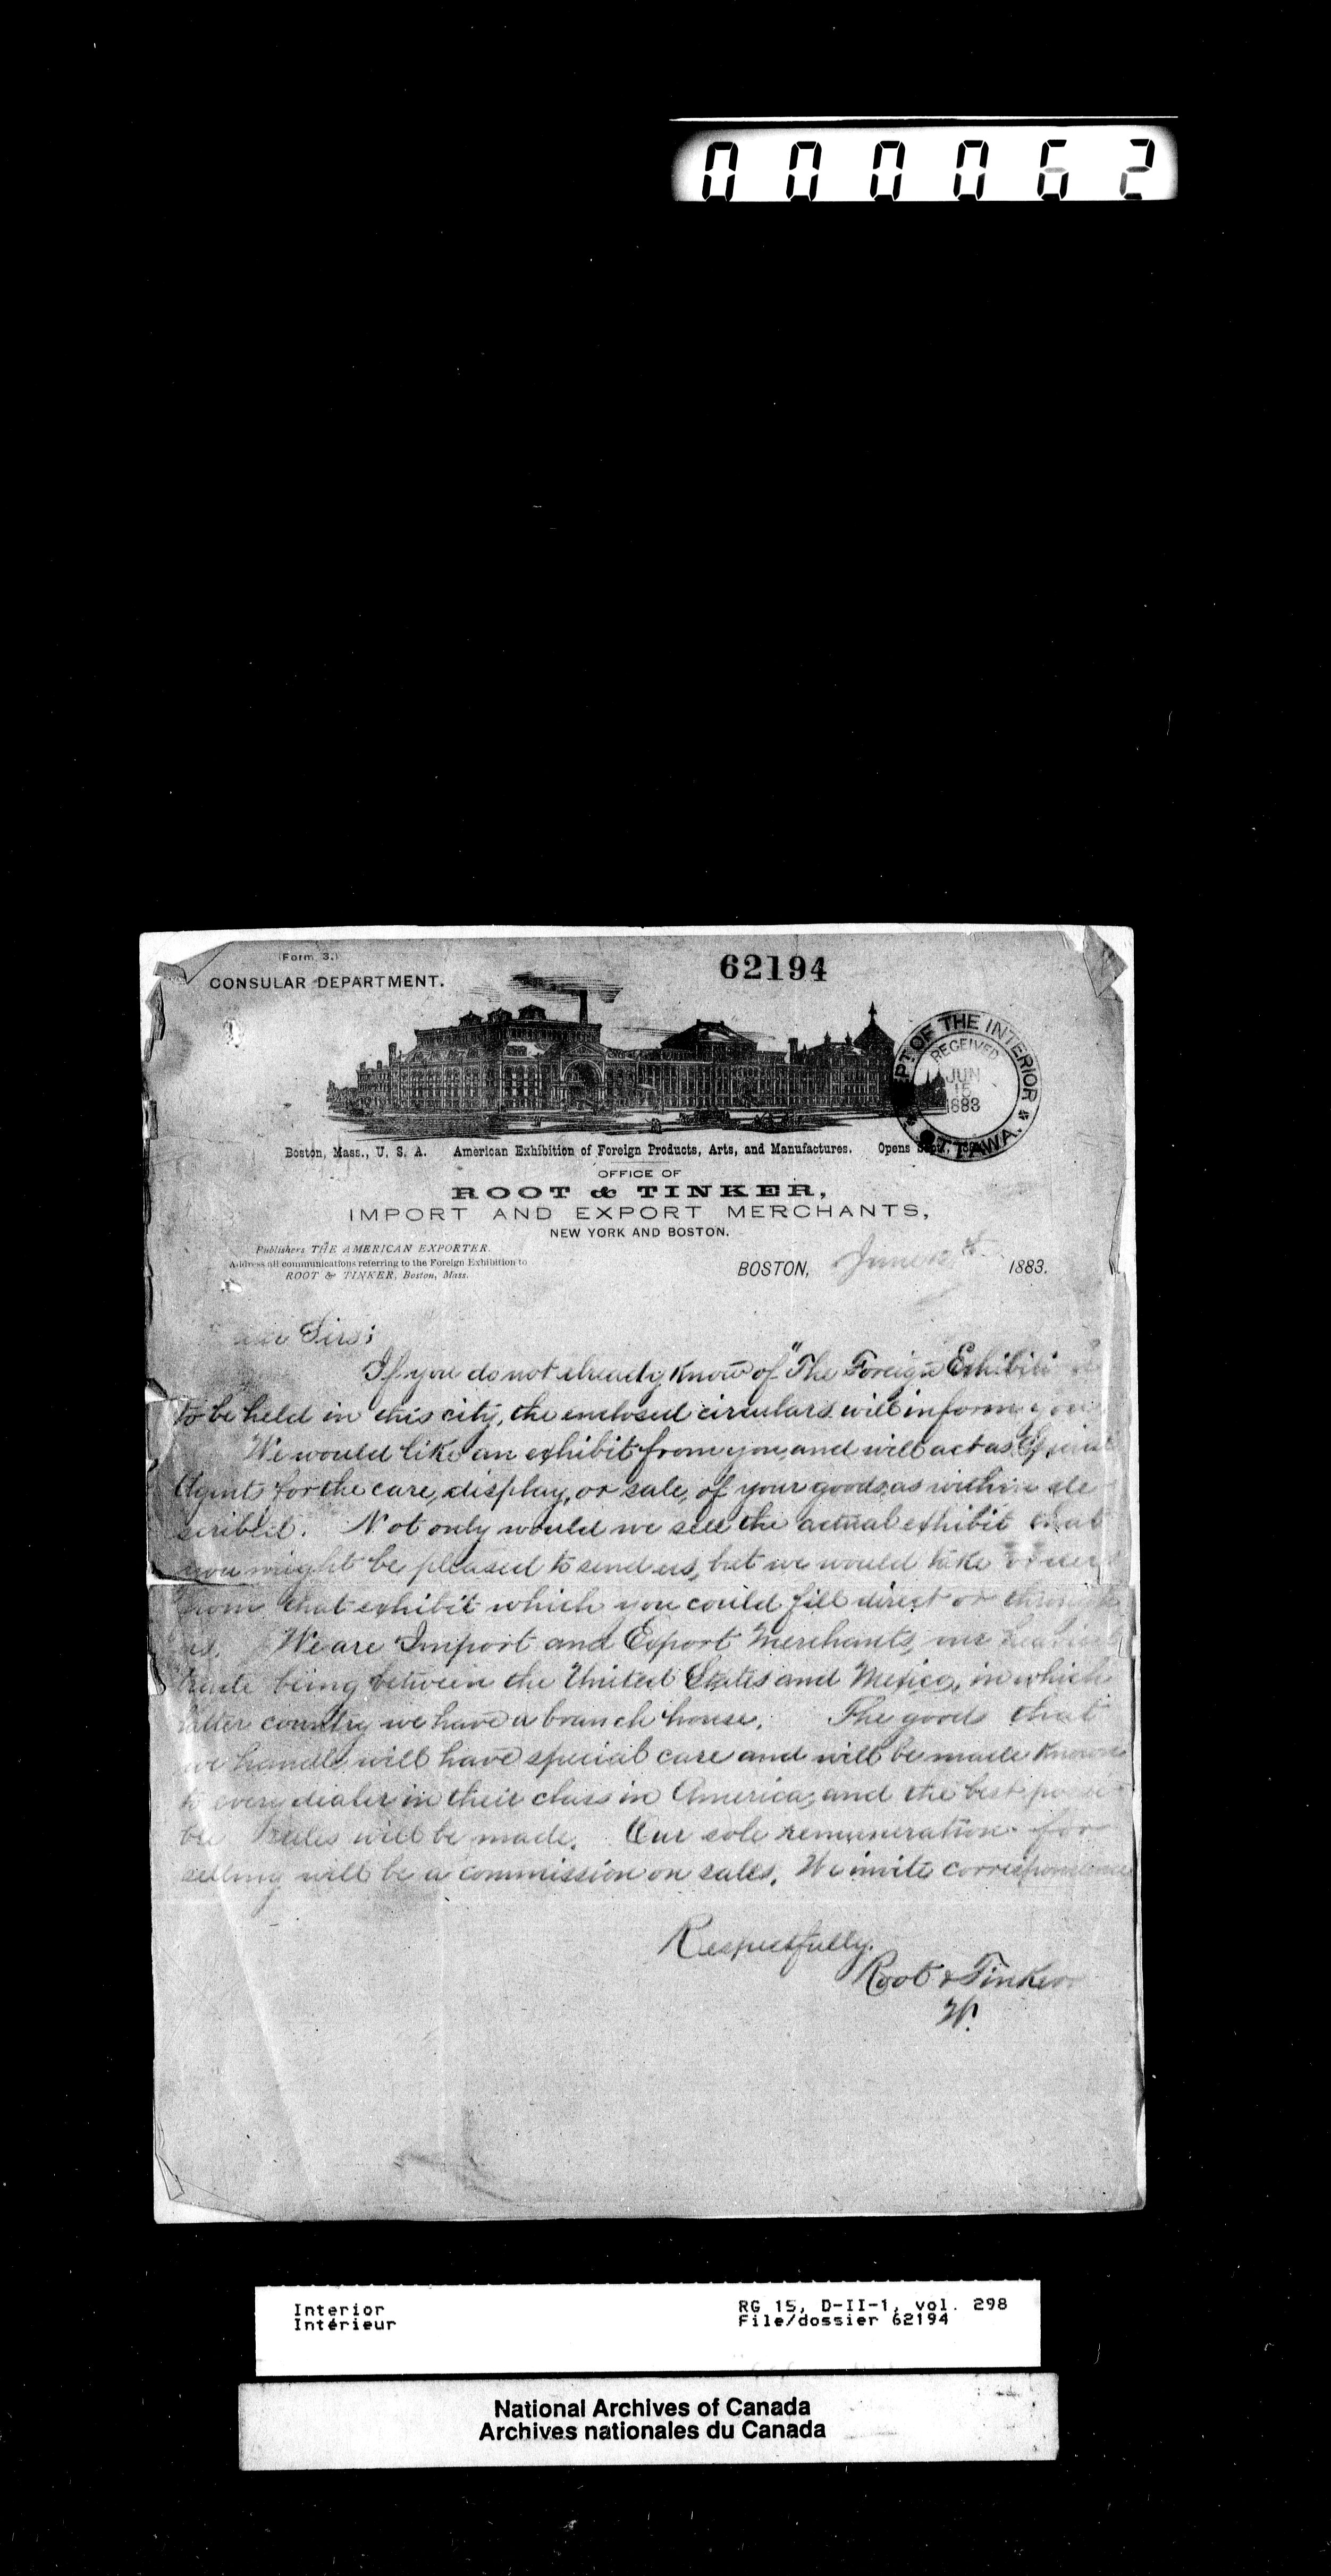 000062
(Form 3.)
62194
CONSULAR DEPARTMENT.
DEPT. OF THE INTERIOR
RECEIVED
JUN
15
1883
OTTAWA.
Boston, Mass., U. S. A. American Exhibition of Foreign Products, Arts, and Manufactures. Opens
OFFICE OF
ROOT & TINKER,
IMPORT AND EXPORT MERCHANTS,
NEW YORK AND BOSTON.
Publishers THE AMERICAN EXPORTER.
Address all communications referring to the Foreign Exhibition to
ROOT & TINKER, Boston, Mass.
BOSTON, June 1883.
Sirs;
If you do not already know of "The Foreign Exhibiti
to be held in this city, the enclosed circulars will inform you
We would like an exhibit from you, and will act as
Agents for the care, display, or sale, of your goods, as within de
scribed. Not only would we sell the actual exhibit that
you might be pleased to send us, but we would take orders
from that exhibit which you could fill direct or through
us. We are Import and Export Merchants, our heaviest
trade being between the United States and Mexico, in which
latter country we have a branch house. The goods that
we handle will have special care and will be made known
to every dealer in their class in America, and the best possi
ble sales will be made. Our sole remuneration for
selling will be a commission on sales. We invite correspondence
Respectfully.
Root & Tinker
W.
Interior
Intérieur
RG 15, D-II-1, vol. 298
File/dossier 62194
National Archives of Canada
Archives nationales du Canada